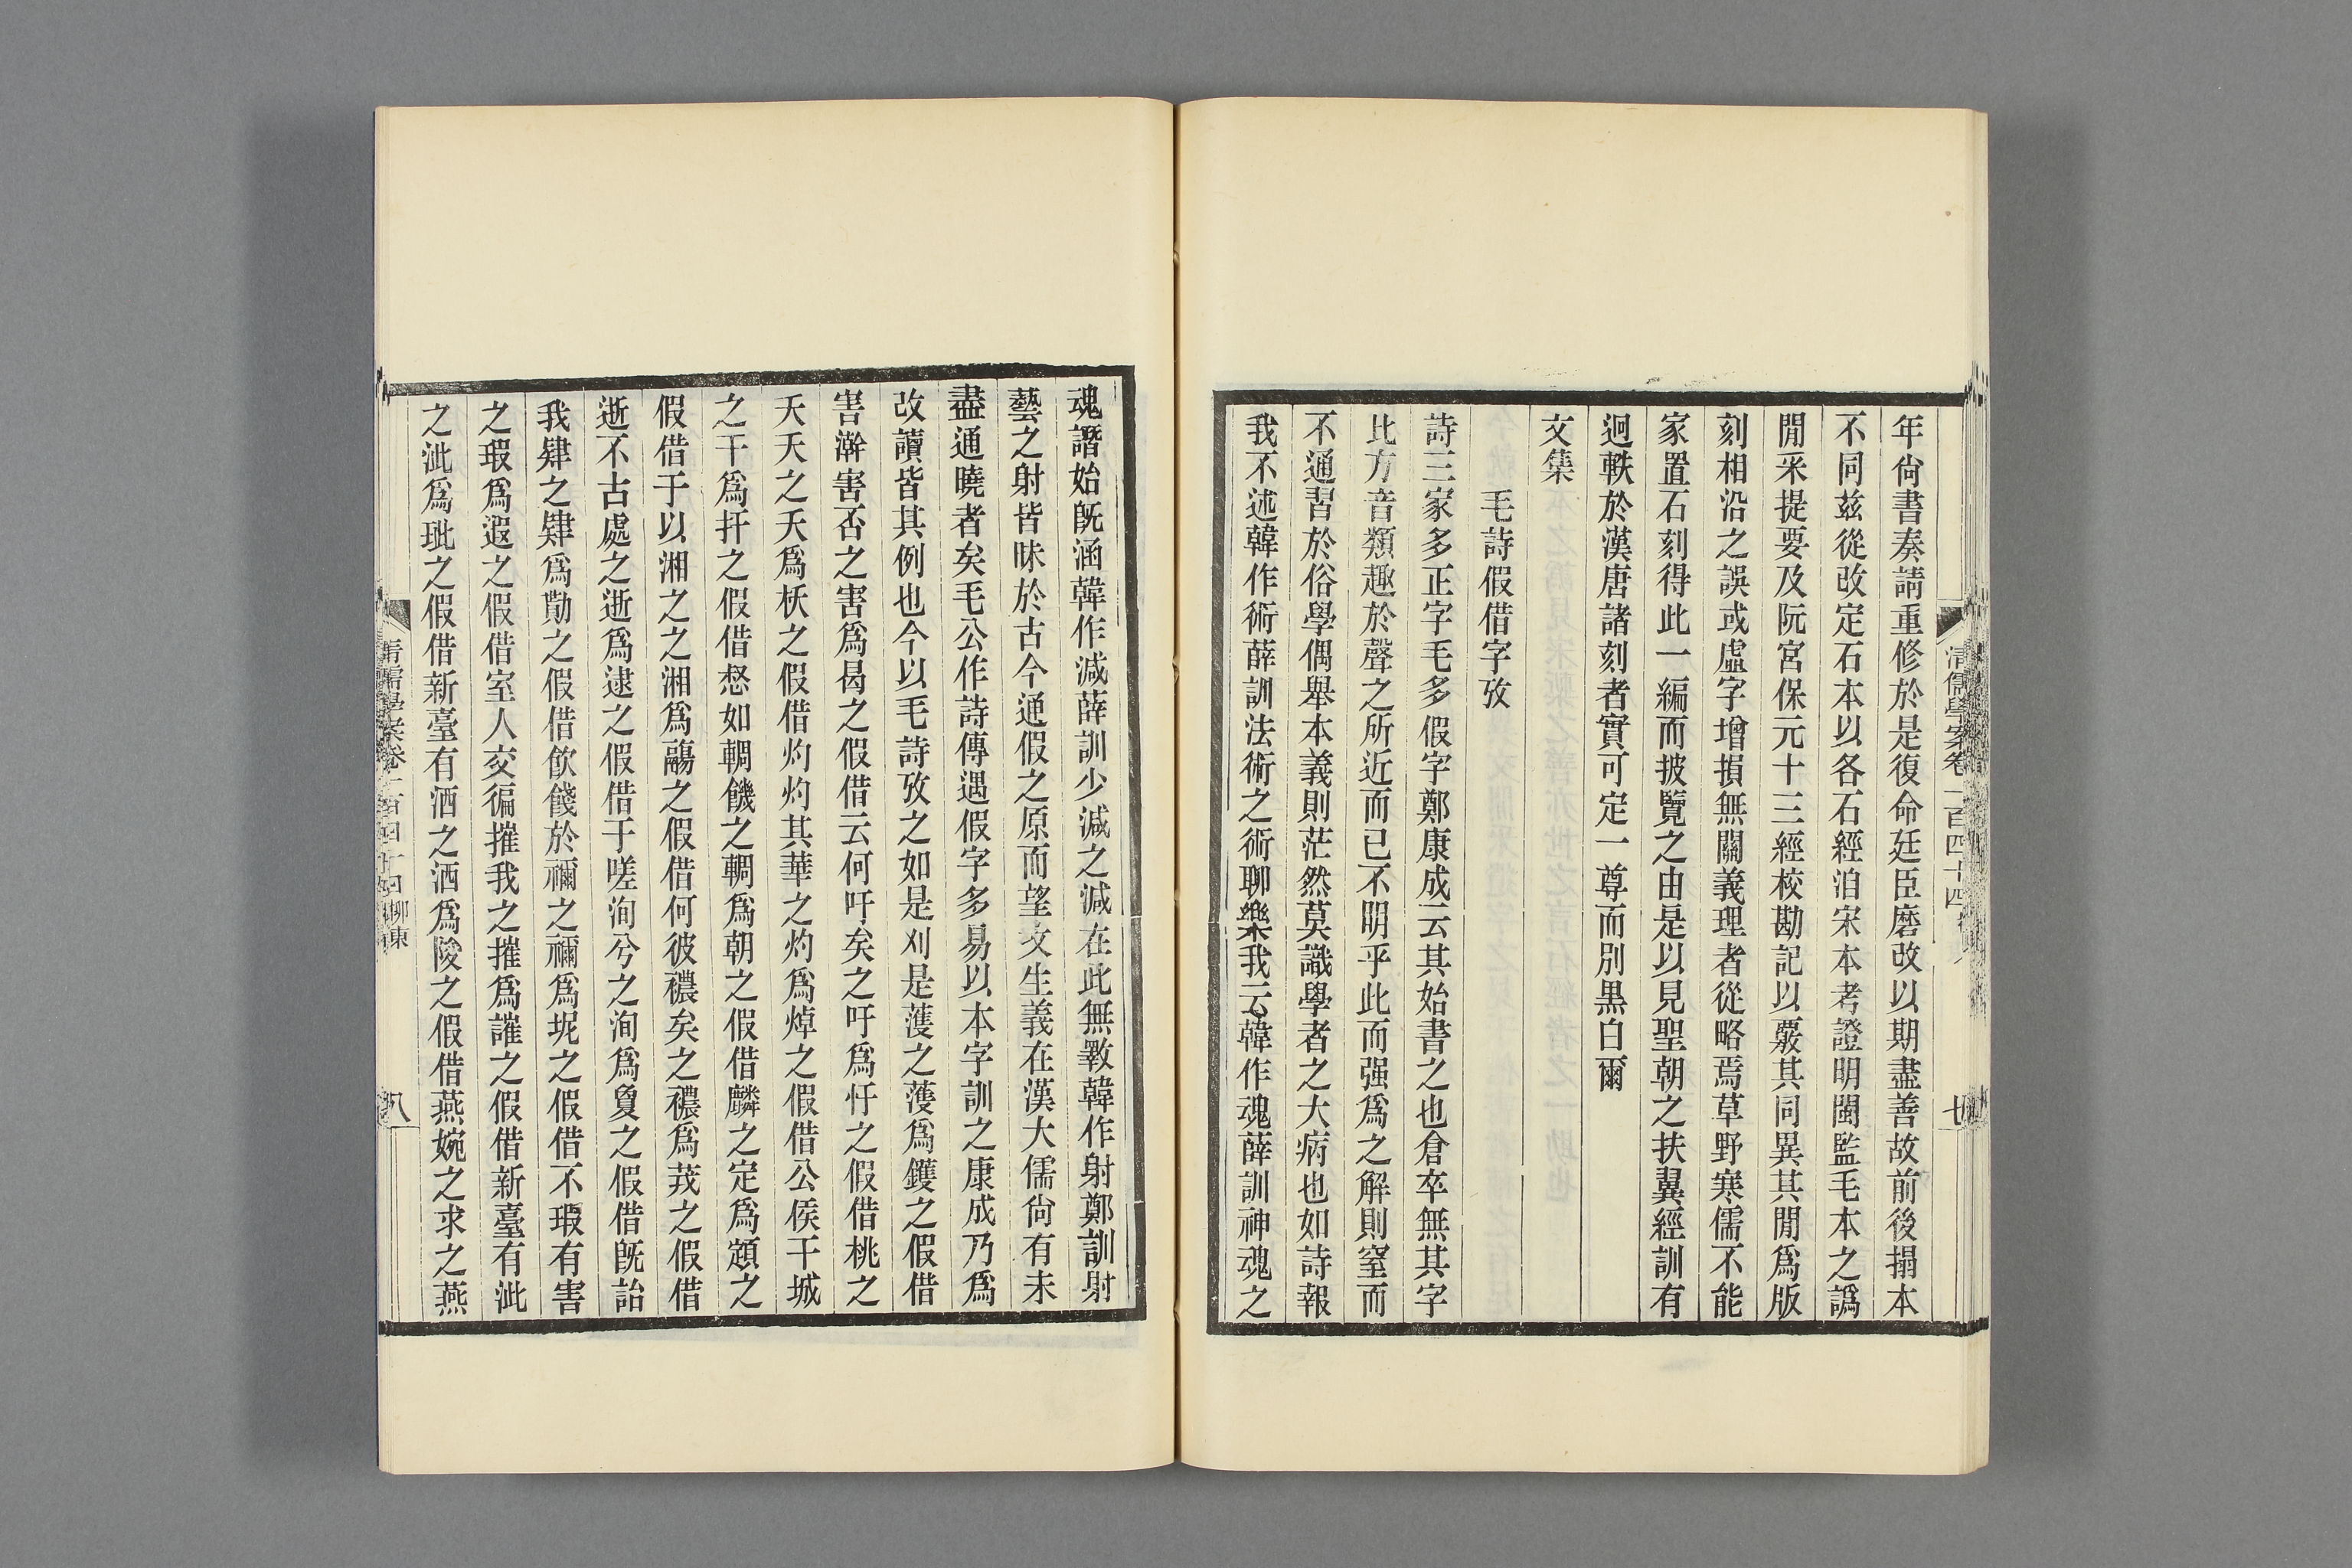 年尙書奏請重修於是復命廷臣磨改以期盡善故前後搨本
不同兹從改定石本以各石經洎宋本考證明閩監毛本之譌
閒采提要及阮宮保元十三經校勘記以覈其同異其閒爲版
刻相沿之誤或虛字增損無關義理者從略焉草野寒儒不能
家置石刻得此一編而披覽之由是以見聖朝之扶翼經訓有
迥軼於漢唐諸刻者實可定一尊而別黑白爾
文集
毛詩假借字攷
詩三家多正字毛多假字鄭康成云其始書之也倉卒無其字
比方音類趣於聲之所近而已不明乎此而强爲之解則窒而
不通習於俗學偶舉本義則茫然莫識學者之大病也如詩報
我不述韓作術薛訓法術之術聊樂我云韓作魂薛訓神魂之
魂譖始旣涵韓作減薛訓少減之減在此無斁韓作射鄭訓射
藝之射皆昧於古今通假之原而望文生義在漢大儒尙有未
盡通曉者矣毛公作詩傳遇假字多易以本字訓之康成乃爲
改讀皆其例也今以毛詩攷之如是刈是濩之濩爲鑊之假借
害澣害否之害爲曷之假借云何吁矣之吁爲忓之假借桃之
夭夭之夭爲枖之假借灼灼其華之灼爲焯之假借公侯干城
之干爲扞之假借惄如輖饑之輖爲朝之假借麟之定爲顁之
假借于以湘之之湘爲鬺之假借何彼襛矣之襛爲茙之假借
逝不古處之逝爲逮之假借于嗟洵兮之洵爲敻之假借旣詒
我肄之肄爲勩之假借飮餞於禰之禰爲坭之假借不瑕有害
之瑕爲遐之假借室人交徧摧我之摧爲讙之假借新臺有泚
之泚爲玼之假借新臺有洒之洒爲陖之假借燕婉之求之燕
清儒學案卷一百四十四
七
清儒學案卷一百四十四 柳東
八